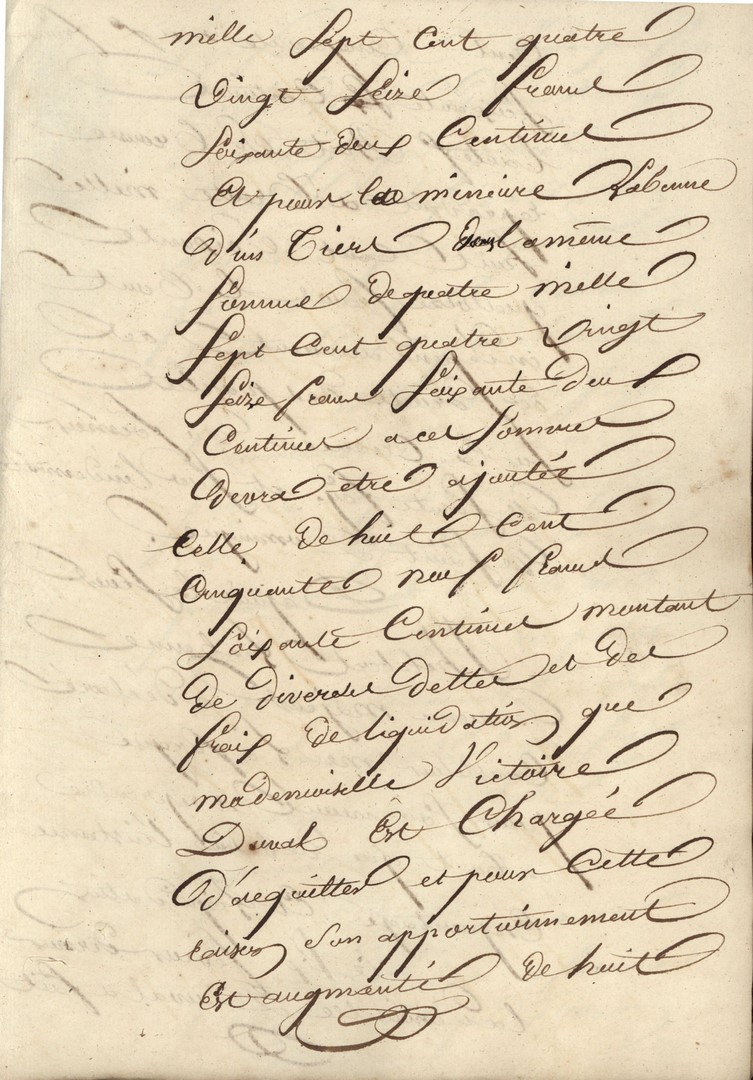 mille Sept Cent quatre
Vingt Seize francs
Soixante deux Centimes
Et pour la mineure Labenne
D'un Tiers dans la même
Somme de quatre mille
Sept Cent quatre Vingt
Seize francs Soixante deux
Centimes a ces Sommes
devra être ajoutée
Celle de huit Cent
Cinquante neuf francs
Soixante Centimes montant
De diverses dettes et des
frais de liquidation que
mademoiselle Victoire
Duval Est Chargée
D'aequitter et pour Cette
raison Son apportiennement
Est augmenté de huit